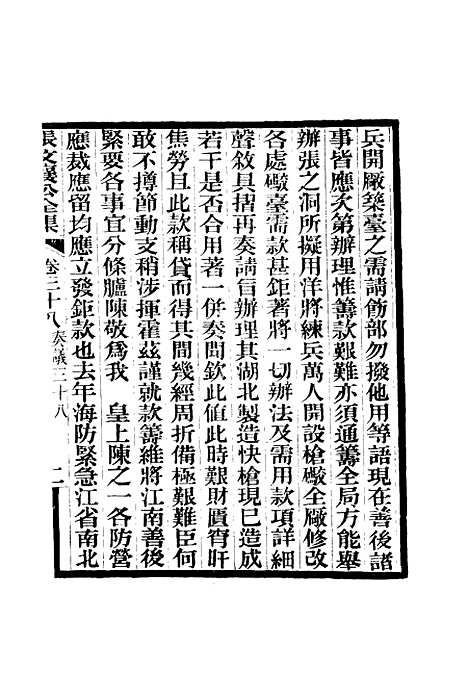 兵開廠築臺之需請飭部勿撥他用等語現在善後諸
事皆應次第辦理惟籌款艱難亦須通籌全局方能舉
辦張之洞所擬用洋將練兵萬人開設槍礮全廠修改
各處礮臺需款甚鉅著將一切辦法及需用款項詳細
聲敘具摺再奏請旨辦理其湖北製造快槍現已造成
若干是否合用著一併奏聞欽此値此時艱財匱宵旰
焦勞且此款稱貸而得其間幾經周折備極艱難臣何
敢不撙節動支稍涉揮霍茲謹就款籌維將江南善後
緊要各事宜分條臚陳敬爲我　皇上陳之一各防營
應裁應留均應立發鉅款也去年海防緊急江省南北
張文襄公全集　卷三十八奏議三十八　二